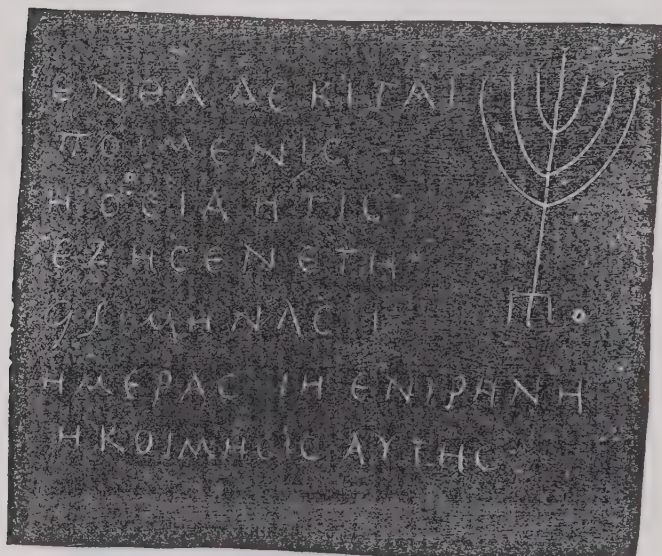 ЄΝΘΑΔЄ ΚΙΤΑΙ
ΠΟΙΜЄΝΙC
Η ΟCΙΑ ΗΤΙC
ЄΖΗCЄΝ ЄΤΗ
ΜΗΝΑC
ΗΜЄΡΑC ΙΗ ЄΝ ΙΡΗΝΗ
Η ΚΟΙΜΗCΙC ΑΥΤΗC